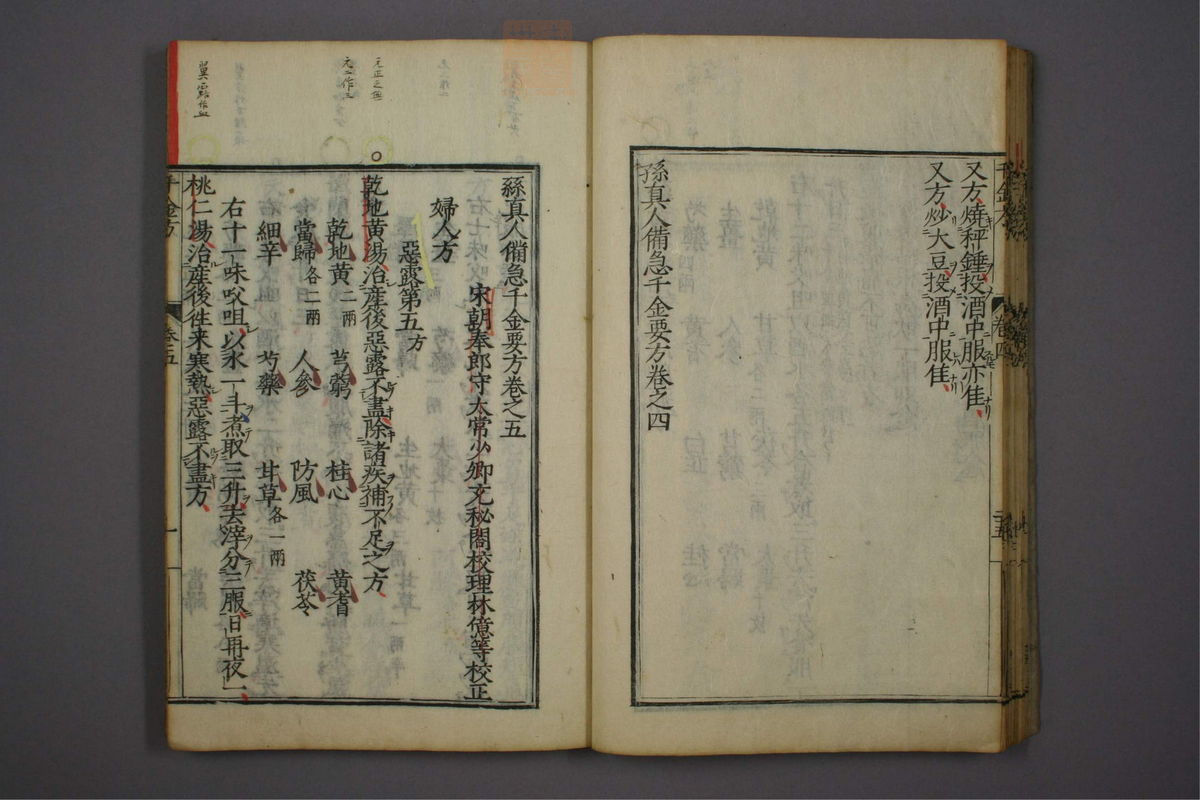 又方燒秤錘投酒中服亦佳
又方炒大豆投酒中服佳
孫真人備急千金要方卷之四
卷四
孫真人備急千金要方卷之五
宋朝奉郎守太常少卿充秘閣校理林億等校正
婦人方
惡露第五方
乾地黃湯治產後惡露不盡除諸疾補不足之方
乾地黃二兩 芎藭 桂心 黃耆
當歸各二兩 人參 防風 茯苓
細辛 芍藥 甘草各一兩
右十一味㕮咀以水一斗煮取三升去滓分三服日再夜一
桃仁湯治產後往来寒熱惡露不盡方
千金方 卷五 一
元正之無
元一作三
翼露作血